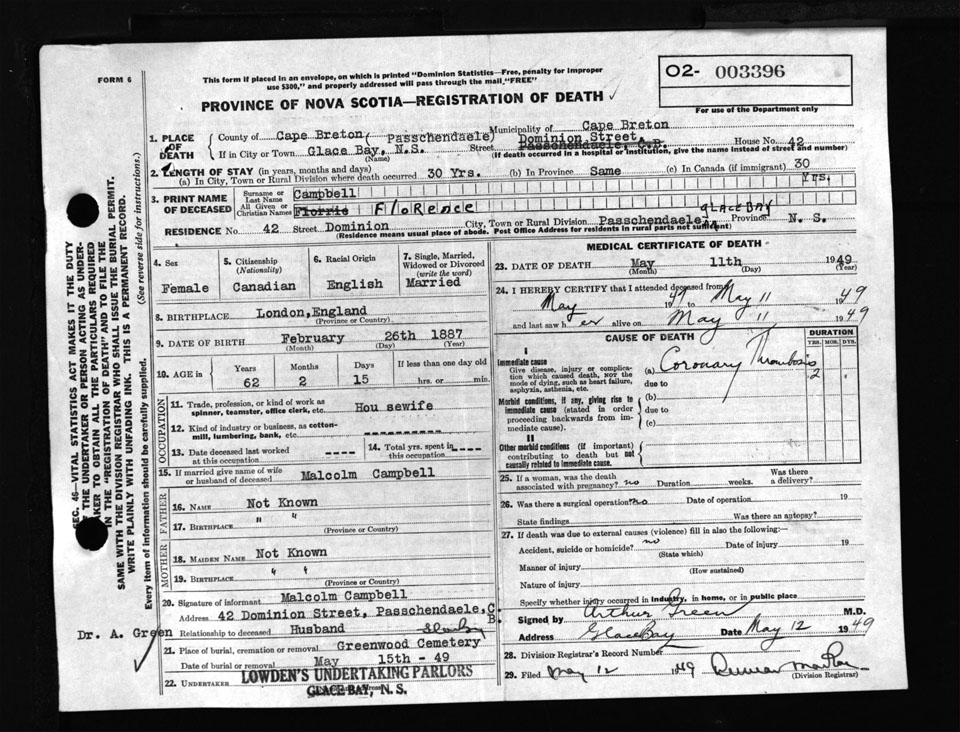 FORM 6
This form if placed in an envelope, on which is printed "Dominion Statistics—Free, penalty for improper
use $300," and properly addressed will pass through the mail "FREE"
O2- 003396
For use of the Department only
PROVINCE OF NOVA SCOTIA—REGISTRATION OF DEATH ✓
1. PLACE OF DEATH
County of Cape Breton ( Passchendaele Municipality of Cape Breton
If in City or Town Glace Bay, N.S. (Name) Street Dominion Street, Passchendaele, C.B. House No. 42
(If death occurred in a hospital or institution, give the name instead of street and number)
2. LENGTH OF STAY (in years, months and days)
(a) In City, Town or Rural Division where death occurred 30 Yrs. (b) In Province Same (c) In Canada (if immigrant) 30 Yrs.
3. PRINT NAME OF DECEASED
Surname or Last Name Campbell
All Given or Christian Names Florrie FloRence
RESIDENCE No. 42 Street Dominion City, Town or Rural Division Passchendaele, GLACE BAY Province N. S.
(Residence means usual place of abode. Post Office Address for residents in rural parts not sufficient)
4. Sex Female
5. Citizenship (Nationality) Canadian
6. Racial Origin English
7. Single, Married, Widowed or Divorced (write the word) Married
8. BIRTHPLACE London, England
(Province or Country)
9. DATE OF BIRTH February 26th 1887
(Month) (Day) (Year)
10. AGE in Years 62 Months 2 Days 15 If less than one day old hrs. or min.
OCCUPATION
11. Trade, profession, or kind of work as spinner, teamster, office clerk, etc. Hou sewife
12. Kind of industry or business, as cotton-mill, lumbering, bank, etc. ----------
13. Date deceased last worked at this occupation ----
14. Total yrs. spent in this occupation ----
15. If married give name of wife or husband of deceased Malcolm Campbell
FATHER
16. NAME Not Known
17. BIRTHPLACE " "
(Province or Country)
MOTHER
18. MAIDEN NAME Not Known
19. BIRTHPLACE " "
(Province or Country)
20. Signature of informant Malcolm Campbell
Address 42 Dominion Street, Passchendaele, C. B.
Relationship to deceased Husband
Dr. A. Green
21. Place of burial, cremation or removal Greenwood Cemetery
Date of burial or removal May 15th - 49
22. UNDERTAKER LOWDEN'S UNDERTAKING PARLORS
GLACE BAY, N. S.
MEDICAL CERTIFICATE OF DEATH
23. DATE OF DEATH May 11th 1949
(Month) (Day) (Year)
24. I HEREBY CERTIFY that I attended deceased from
May 1949 to May 11 1949
and last saw her alive on May 11 1949
CAUSE OF DEATH
DURATION
YRS. MOS. DYS.
I
Immediate cause
Give disease, injury or complication which caused death, not the mode of dying, such as heart failure, asphyxia, asthenia, etc.
(a) Coronary Thrombosis 2
due to
Morbid conditions, if any, giving rise to immediate cause (stated in order proceeding backwards from immediate cause).
(b)
due to
(c)
II
Other morbid conditions (if important) contributing to death but not causally related to immediate cause.
25. If a woman, was the death associated with pregnancy? no Duration weeks. Was there a delivery?
26. Was there a surgical operation? no Date of operation 19
State findings Was there an autopsy?
27. If death was due to external causes (violence) fill in also the following:—
Accident, suicide or homicide? no Date of injury 19
(State which)
Manner of injury
(How sustained)
Nature of injury
Specify whether injury occurred in industry, in home, or in public place
Signed by Arthur Green M.D.
Address Glace Bay Date May 12 1949
28. Division Registrar's Record Number
29. Filed May 12 1949
(Division Registrar)
SEC. 46—VITAL STATISTICS ACT MAKES IT THE DUTY
THE UNDERTAKER OR PERSON ACTING AS UNDER-
TAKER TO OBTAIN ALL THE PARTICULARS REQUIRED
IN THE "REGISTRATION OF DEATH" AND TO FILE THE
SAME WITH THE DIVISION REGISTRAR WHO SHALL ISSUE THE BURIAL PERMIT.
WRITE PLAINLY WITH UNFADING INK. THIS IS A PERMANENT RECORD.
Every item of information should be carefully supplied. (See reverse side for instructions.)